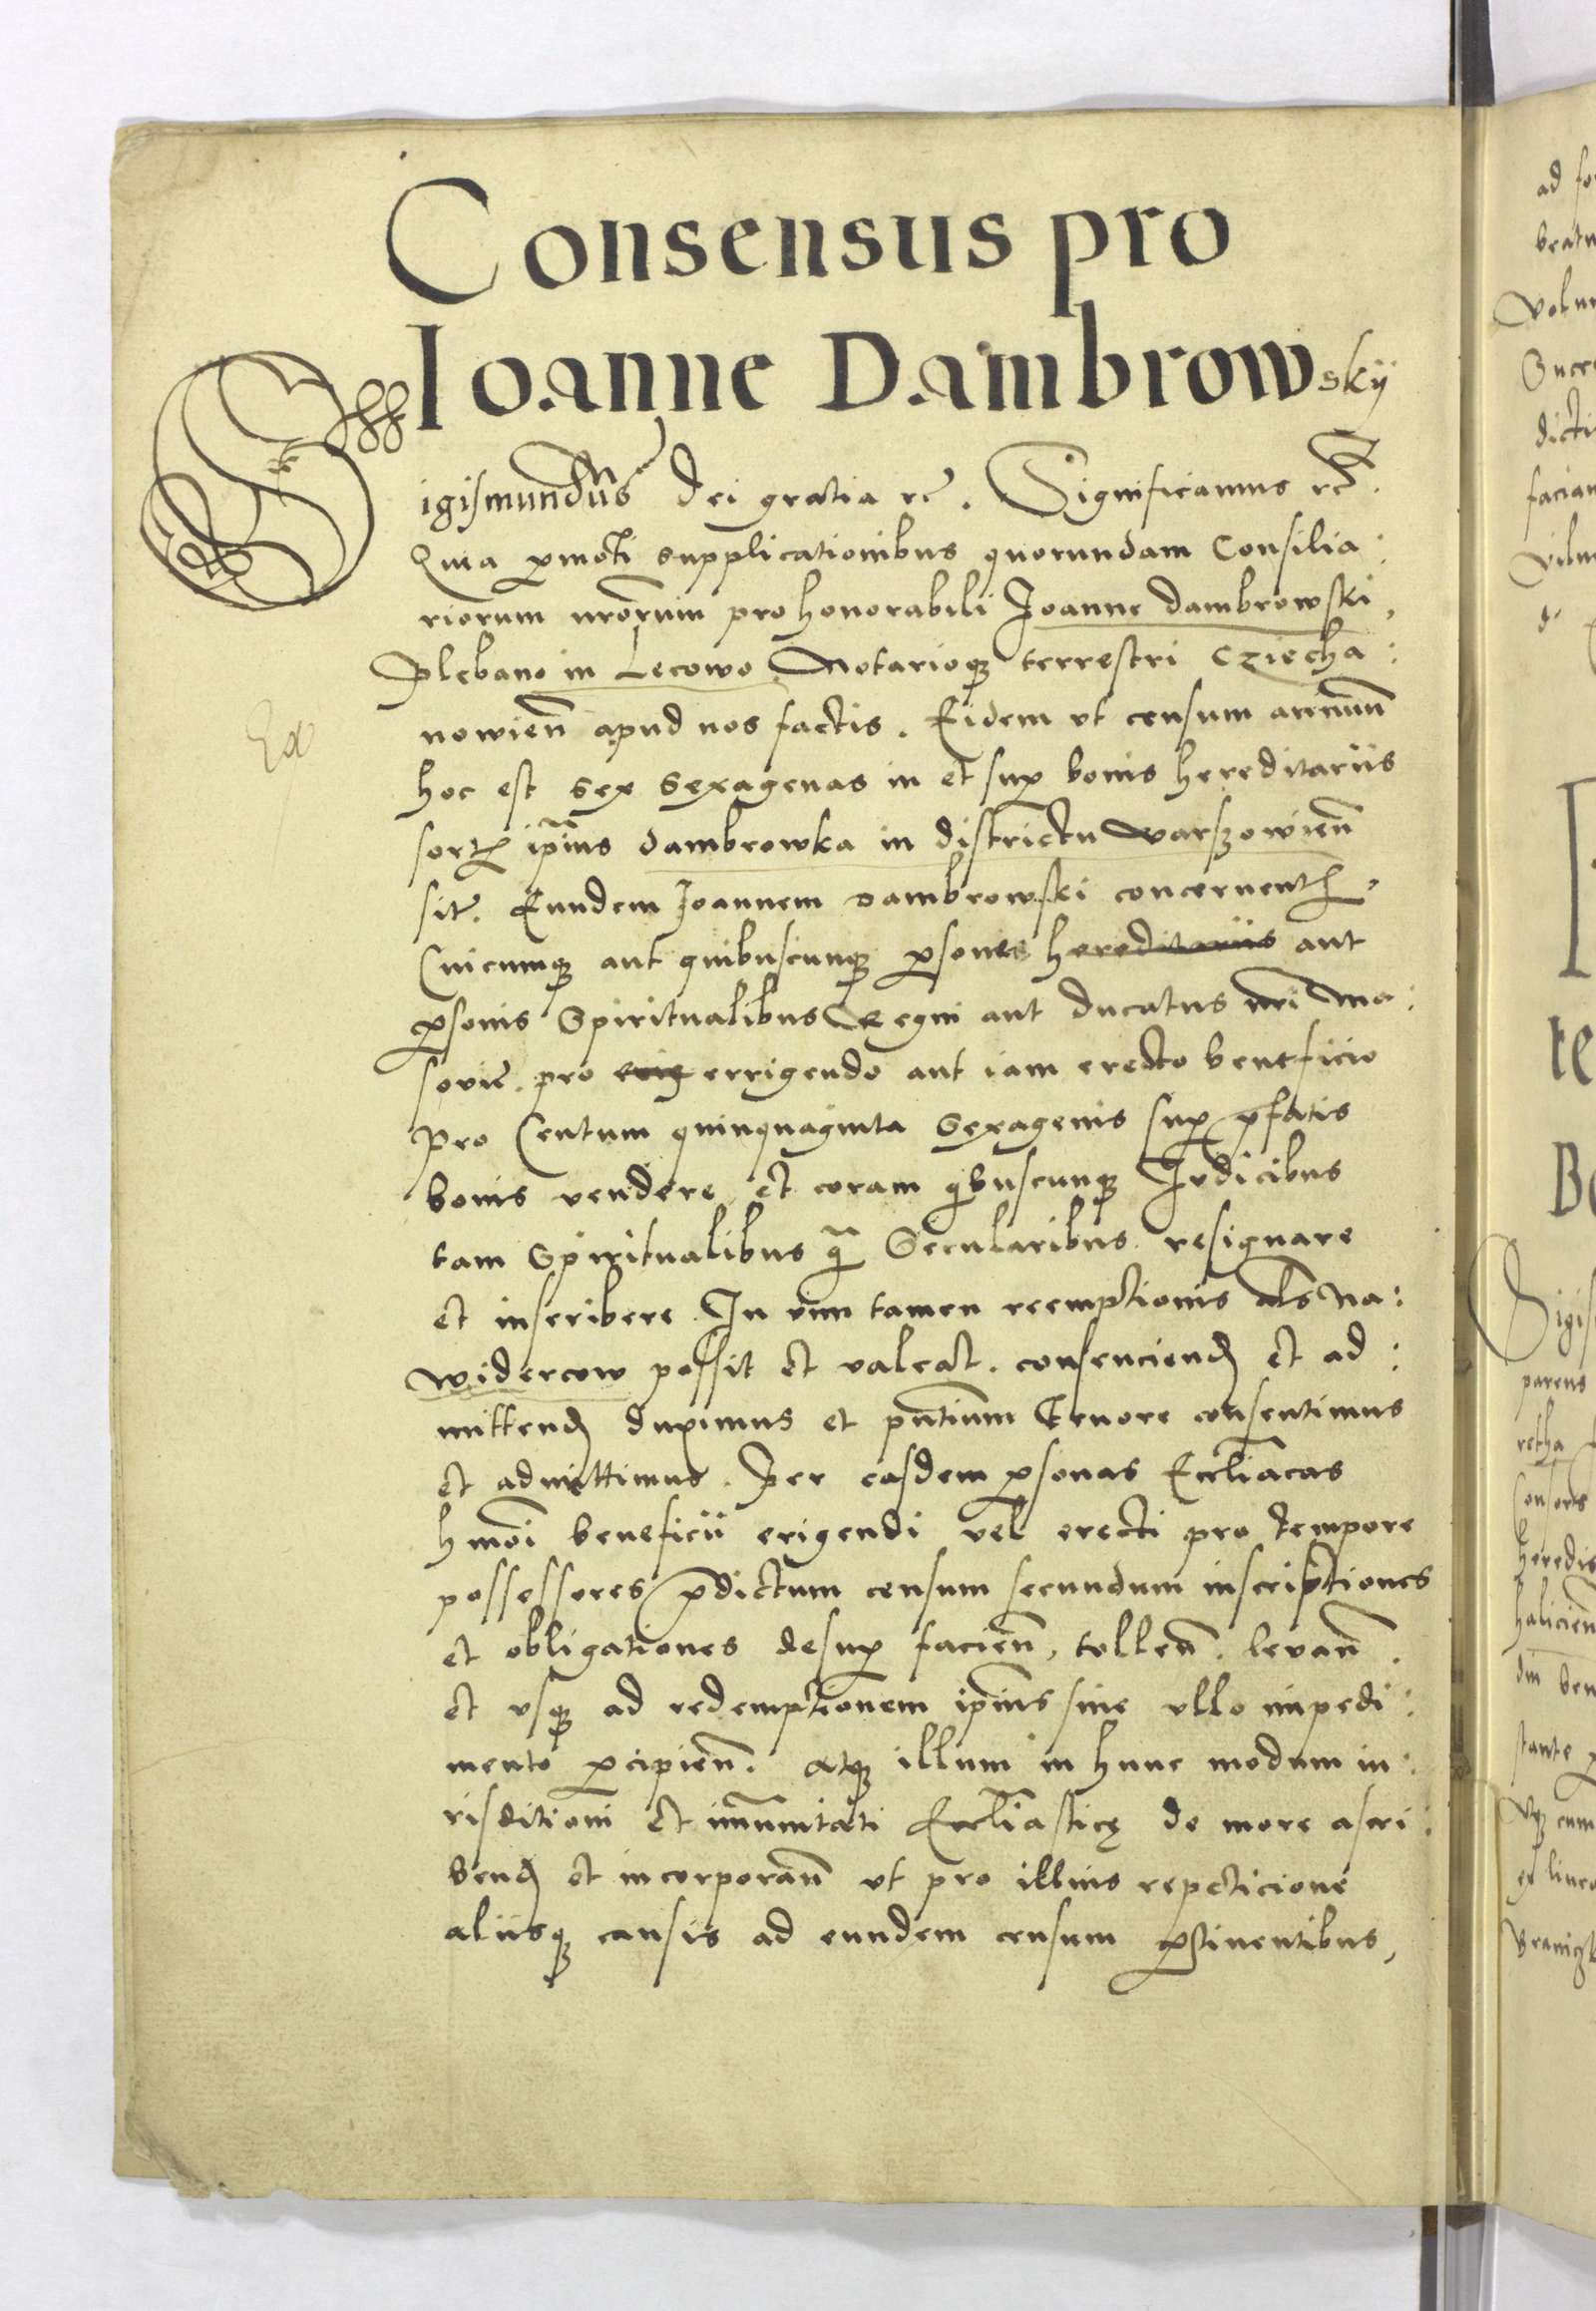 Consensus pro
Ioanne Dambrowskÿ
Sigismundus Dei gratia rc̃. Significamus rc̃.
Quia ꝑmoti supplicationibus quorundam Consilia:
riorum nrorum pro honorabili Joanne dambrowski,
Plebano in Lecowo Notarioqꝫ terrestri Cziecha:
nowien̄ apud nos factis. Eidem vt censum annuum
hoc est sex sexagenas in et suꝑ bonis hereditariis
sortꝭ ipsius dambrowka in districtu warszowien̄
sit̃. Eundem Joannem dambrowski concernentꝭ,
Cuicumqꝫ aut quibuscunqꝫ ꝑsonis hereditariis aut
ꝑsonis Spiritualibus Regni aut ducatus nri Ma:
sovie. pro errigendo aut iam erecto beneficio
Pro Centum quinquaginta sexagenis suꝑ p̄fatis
bonis vendere et coram qibuscunqꝫ Iudicibus
tam Spiritualibus q̃ Secularibus resignare
et inscribere. In vim tamen reemptionis als Na:
widercow possit et valeat. consenciend̄ et ad:
mittend̄ duximus et pn̄tium tenore consentimus
et admittimus. Per easdem ꝑsonas Eccliacas
hmōi beneficii erigendi vel erecti pro tempore
possessores p̄dictum censum secundum inscriptiones
et obligationes desuꝑ facien̄, tollen̄. levan̄.
et vsqꝫ ad redemptionem ipsius sine vllo impedi:
mento ꝑcipien̄. atqꝫ illum in hunc modum iu:
risditioni et imunitati Eccliasticę de more ascri:
bend̄ et incorporan̄ vt pro illius repeticione
aliisqꝫ causis ad eundem censum ꝑtinentibus,
Ex
ad
dicti
facian
Sigis
parens
retha
Consors
heredis
halicien
din ben
stante
cum
ex linea